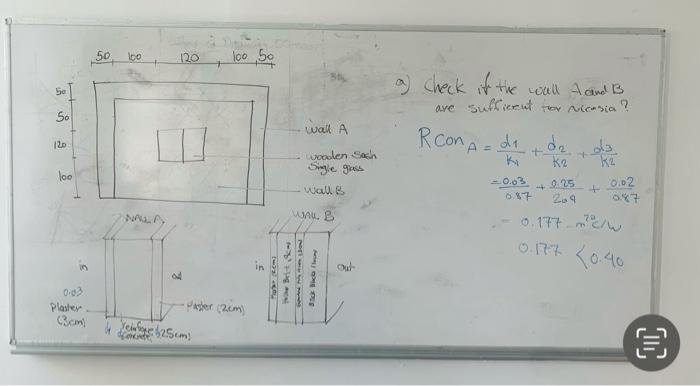 50 100 120 100 50
50
50
120
100
wall A
wooden sash
Single glass
wall B
WALL A
in
out
0.03
Plaster
(3cm)
Plaster (2cm)
reinforced
concrete (25cm)
WALL B
in
out
Plaster (2cm)
a) Check if the wall A and B
are sufficent for Nicosia?
R con A = d1/K1 + d2/K2 + d3/K2
= 0.03/0.87 + 0.25/2.09 + 0.02/0.87
= 0.177 m²°C/W
0.177 < 0.40